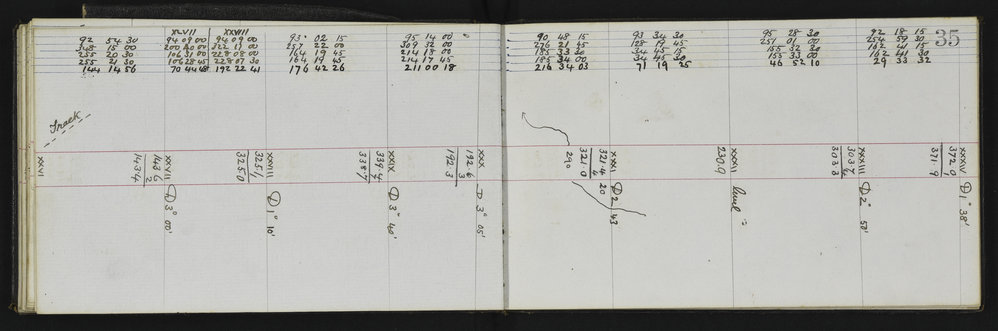 XXVII XXVIII
92 54 30
348 15 00
255 20 30
255 21 30
144 14 56
94 09 00
106 31 00
106 28 45
70 44 48
94 09 00
322 17 00
228 08 00
228 07 30
192 22 41
93 02 15
257 22 00
164 19 45
164 19 45
176 42 26
95 14 00
309 32 00
214 18 00
214 17 45
211 00 18
90 48 15
276 21 45
185 33 30
185 34 00
216 34 03
93 34 30
128 19 45
34 45 15
34 45 30
71 19 25
95 28 30
251 01 00
155 32 30
155 33 00
46 52 10
92 18 15
254 59 30
162 41 15
162 41 30
29 33 32
35
Track
XXVI
143.6
2
143.4
XXVII
D 3° 00'
325.1
1
325.0
XXVIII
D 1° 10'
339.4
7
338.7
XXIX
D 3° 40'
192.6
3
192.3
XXX
D 3° 05'
290
321.4
4
321.0
20
XXXI
D 2 43
230.9
XXXII
level
303.7
4
303.3
XXXIII
D 2° 50'
372.0
1
371.9
XXXIV
D 1° 38'